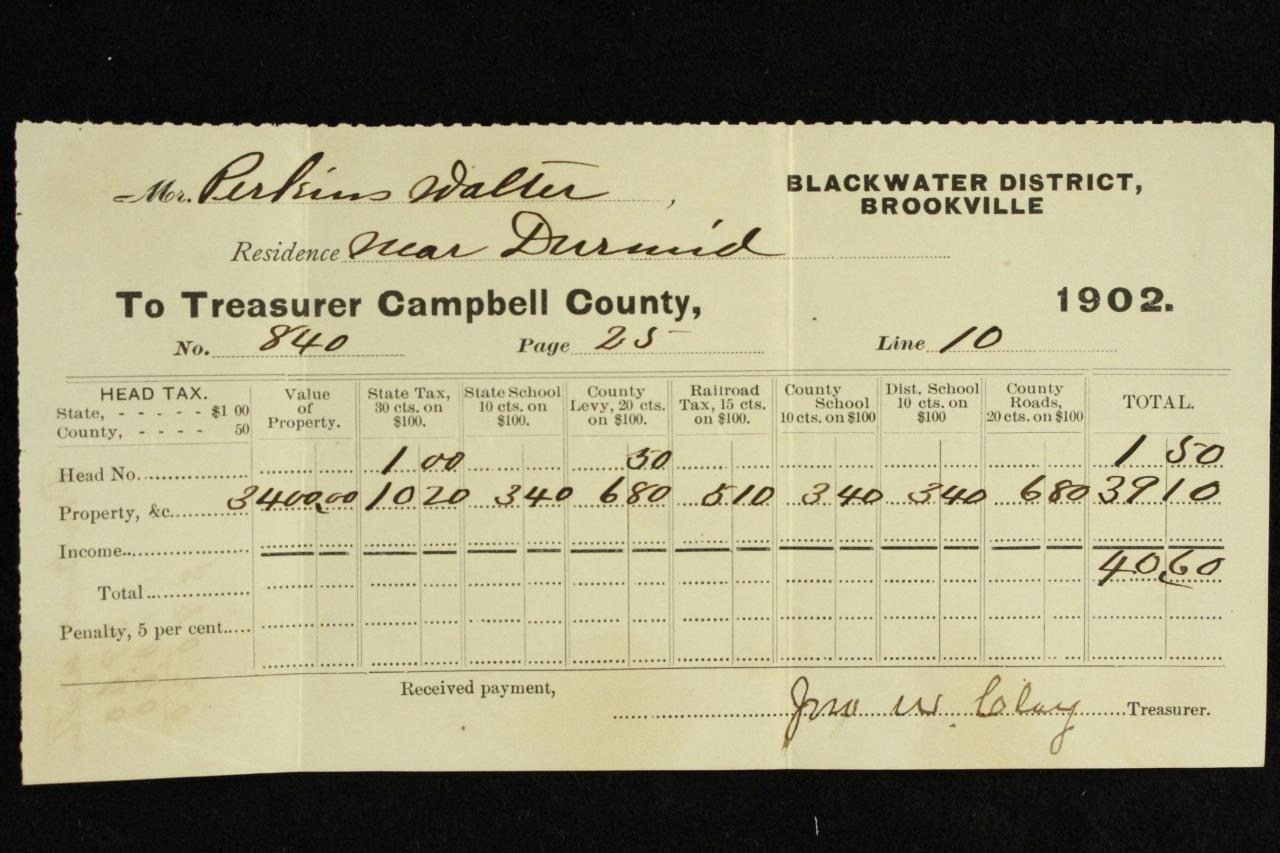 Mr. Perkins Walter,
BLACKWATER DISTRICT,
BROOKVILLE
Residence near Durmid
To Treasurer Campbell County, 1902.
No. 840 Page 25 Line 10
HEAD TAX.
State, - - - - - $1 00
County, - - - - 50
Value of Property.
State Tax, 30 cts. on $100.
State School 10 cts. on $100.
County Levy, 20 cts. on $100.
Railroad Tax, 15 cts. on $100.
County School 10 cts. on $100
Dist. School 10 cts. on $100
County Roads, 20 cts. on $100
TOTAL.
Head No. 1 00 50 1 50
Property, &c. 3400.00 10 20 3 40 6 80 5 10 3 40 3 40 6 80 39 10
Income
Total 40.60
Penalty, 5 per cent.
Received payment,
Jno W. Clay Treasurer.